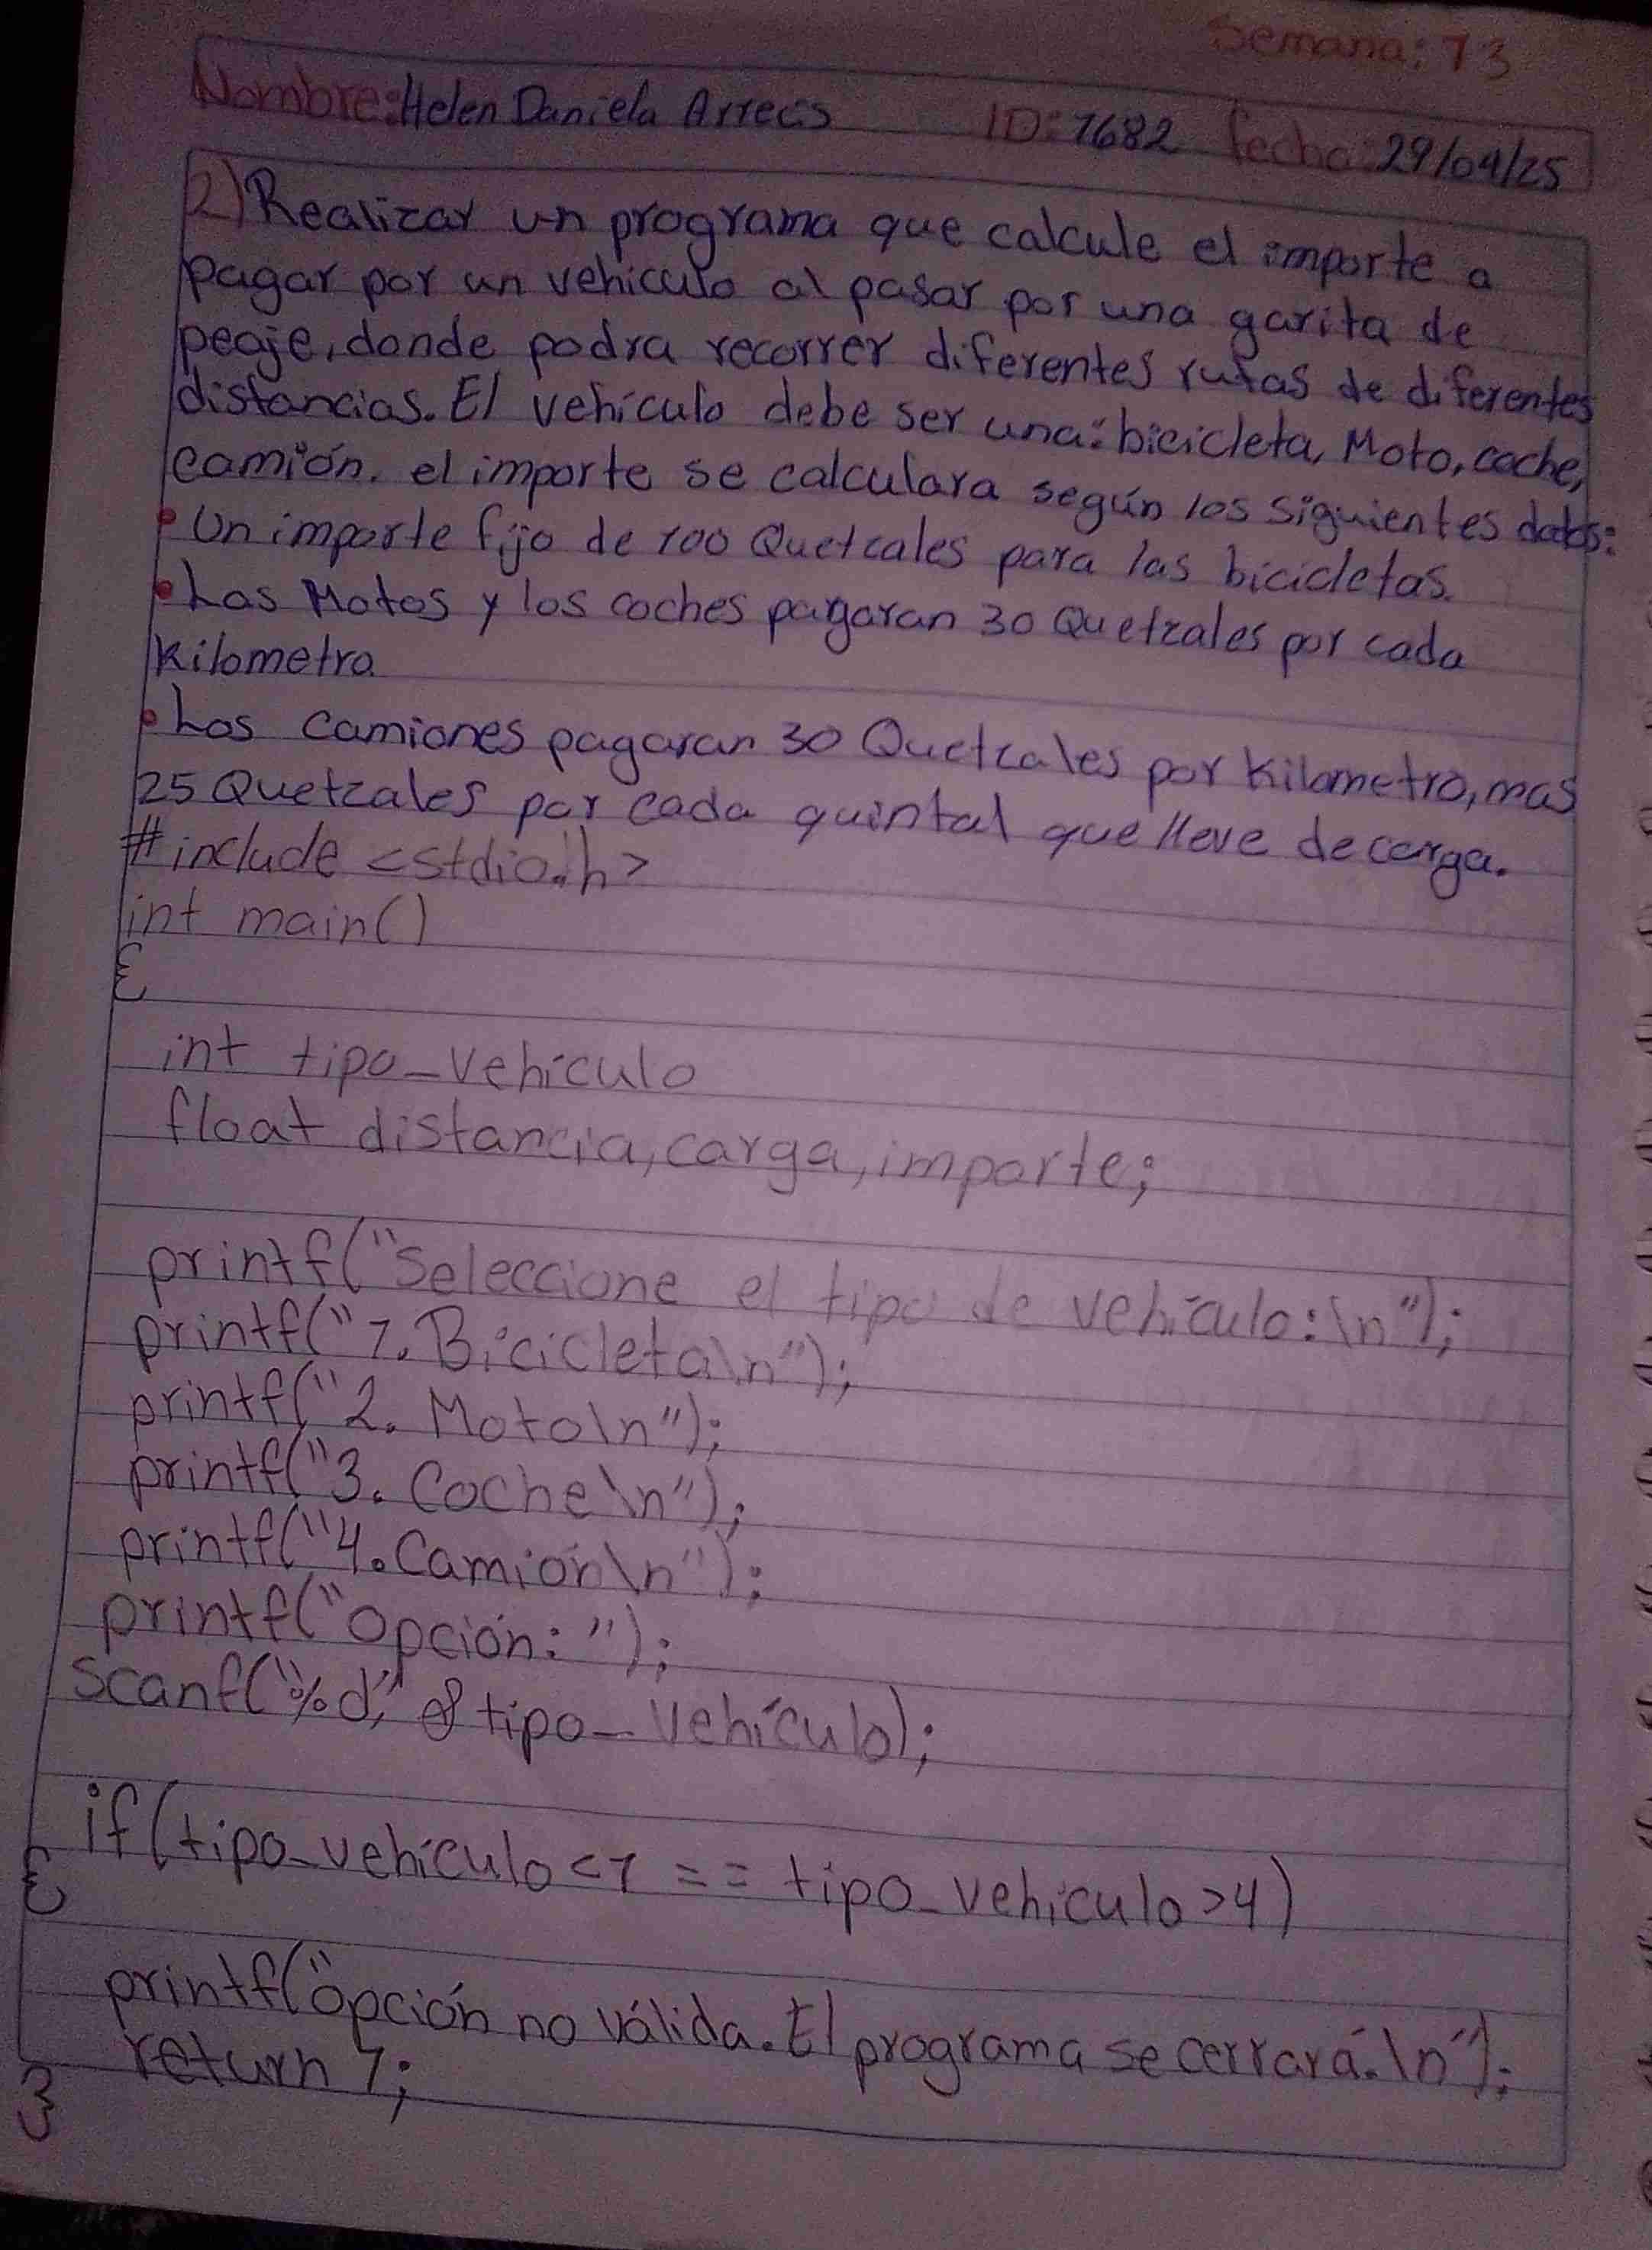 Semana: 13
Nombre: Helen Daniela Arrecis ID: 1682 fecha: 29/04/25
2) Realizar un programa que calcule el importe a
pagar por un vehiculo al pasar por una garita de
peaje, donde podra recorrer diferentes rutas de diferentes
distancias. El vehículo debe ser una: bicicleta, Moto, coche,
camión. el importe se calculara según los siguientes datos:
• Un importe fijo de 100 Quetzales para las bicicletas.
• Las Motos y los coches pagaran 30 Quetzales por cada
kilometro.
• Los camiones pagaran 30 Quetzales por kilometro, mas
25 Quetzales por cada quintal que lleve de carga.
#include <stdio.h>
int main()
{
int tipo_vehículo
float distancia, carga, importe;
printf("Seleccione el tipo de vehículo:\n");
printf("1. Bicicleta\n");
printf("2. Moto\n");
printf("3. Coche\n");
printf("4. Camión\n");
printf("Opción: ");
scanf("%d", &tipo_vehículo);
if(tipo_vehículo<1 == tipo_vehiculo>4)
{
printf("opción no válida. El programa se cerrará.\n");
return 1;
}